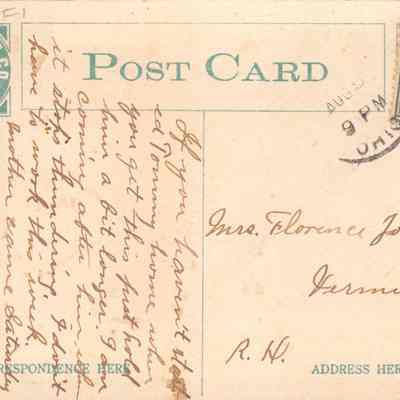 E1
Co
POST CARD
AUG
9 PM
OHIO
If you haven't start
ed Tommy home when
you get this just hold
him a bit longer I am
coming after him when
it stops thundering. I don't
have to work this week
Mother came Saturday
Mrs. Florence Jo
Vermi
R. H.
RRESPONDENCE HERE
ADDRESS HER